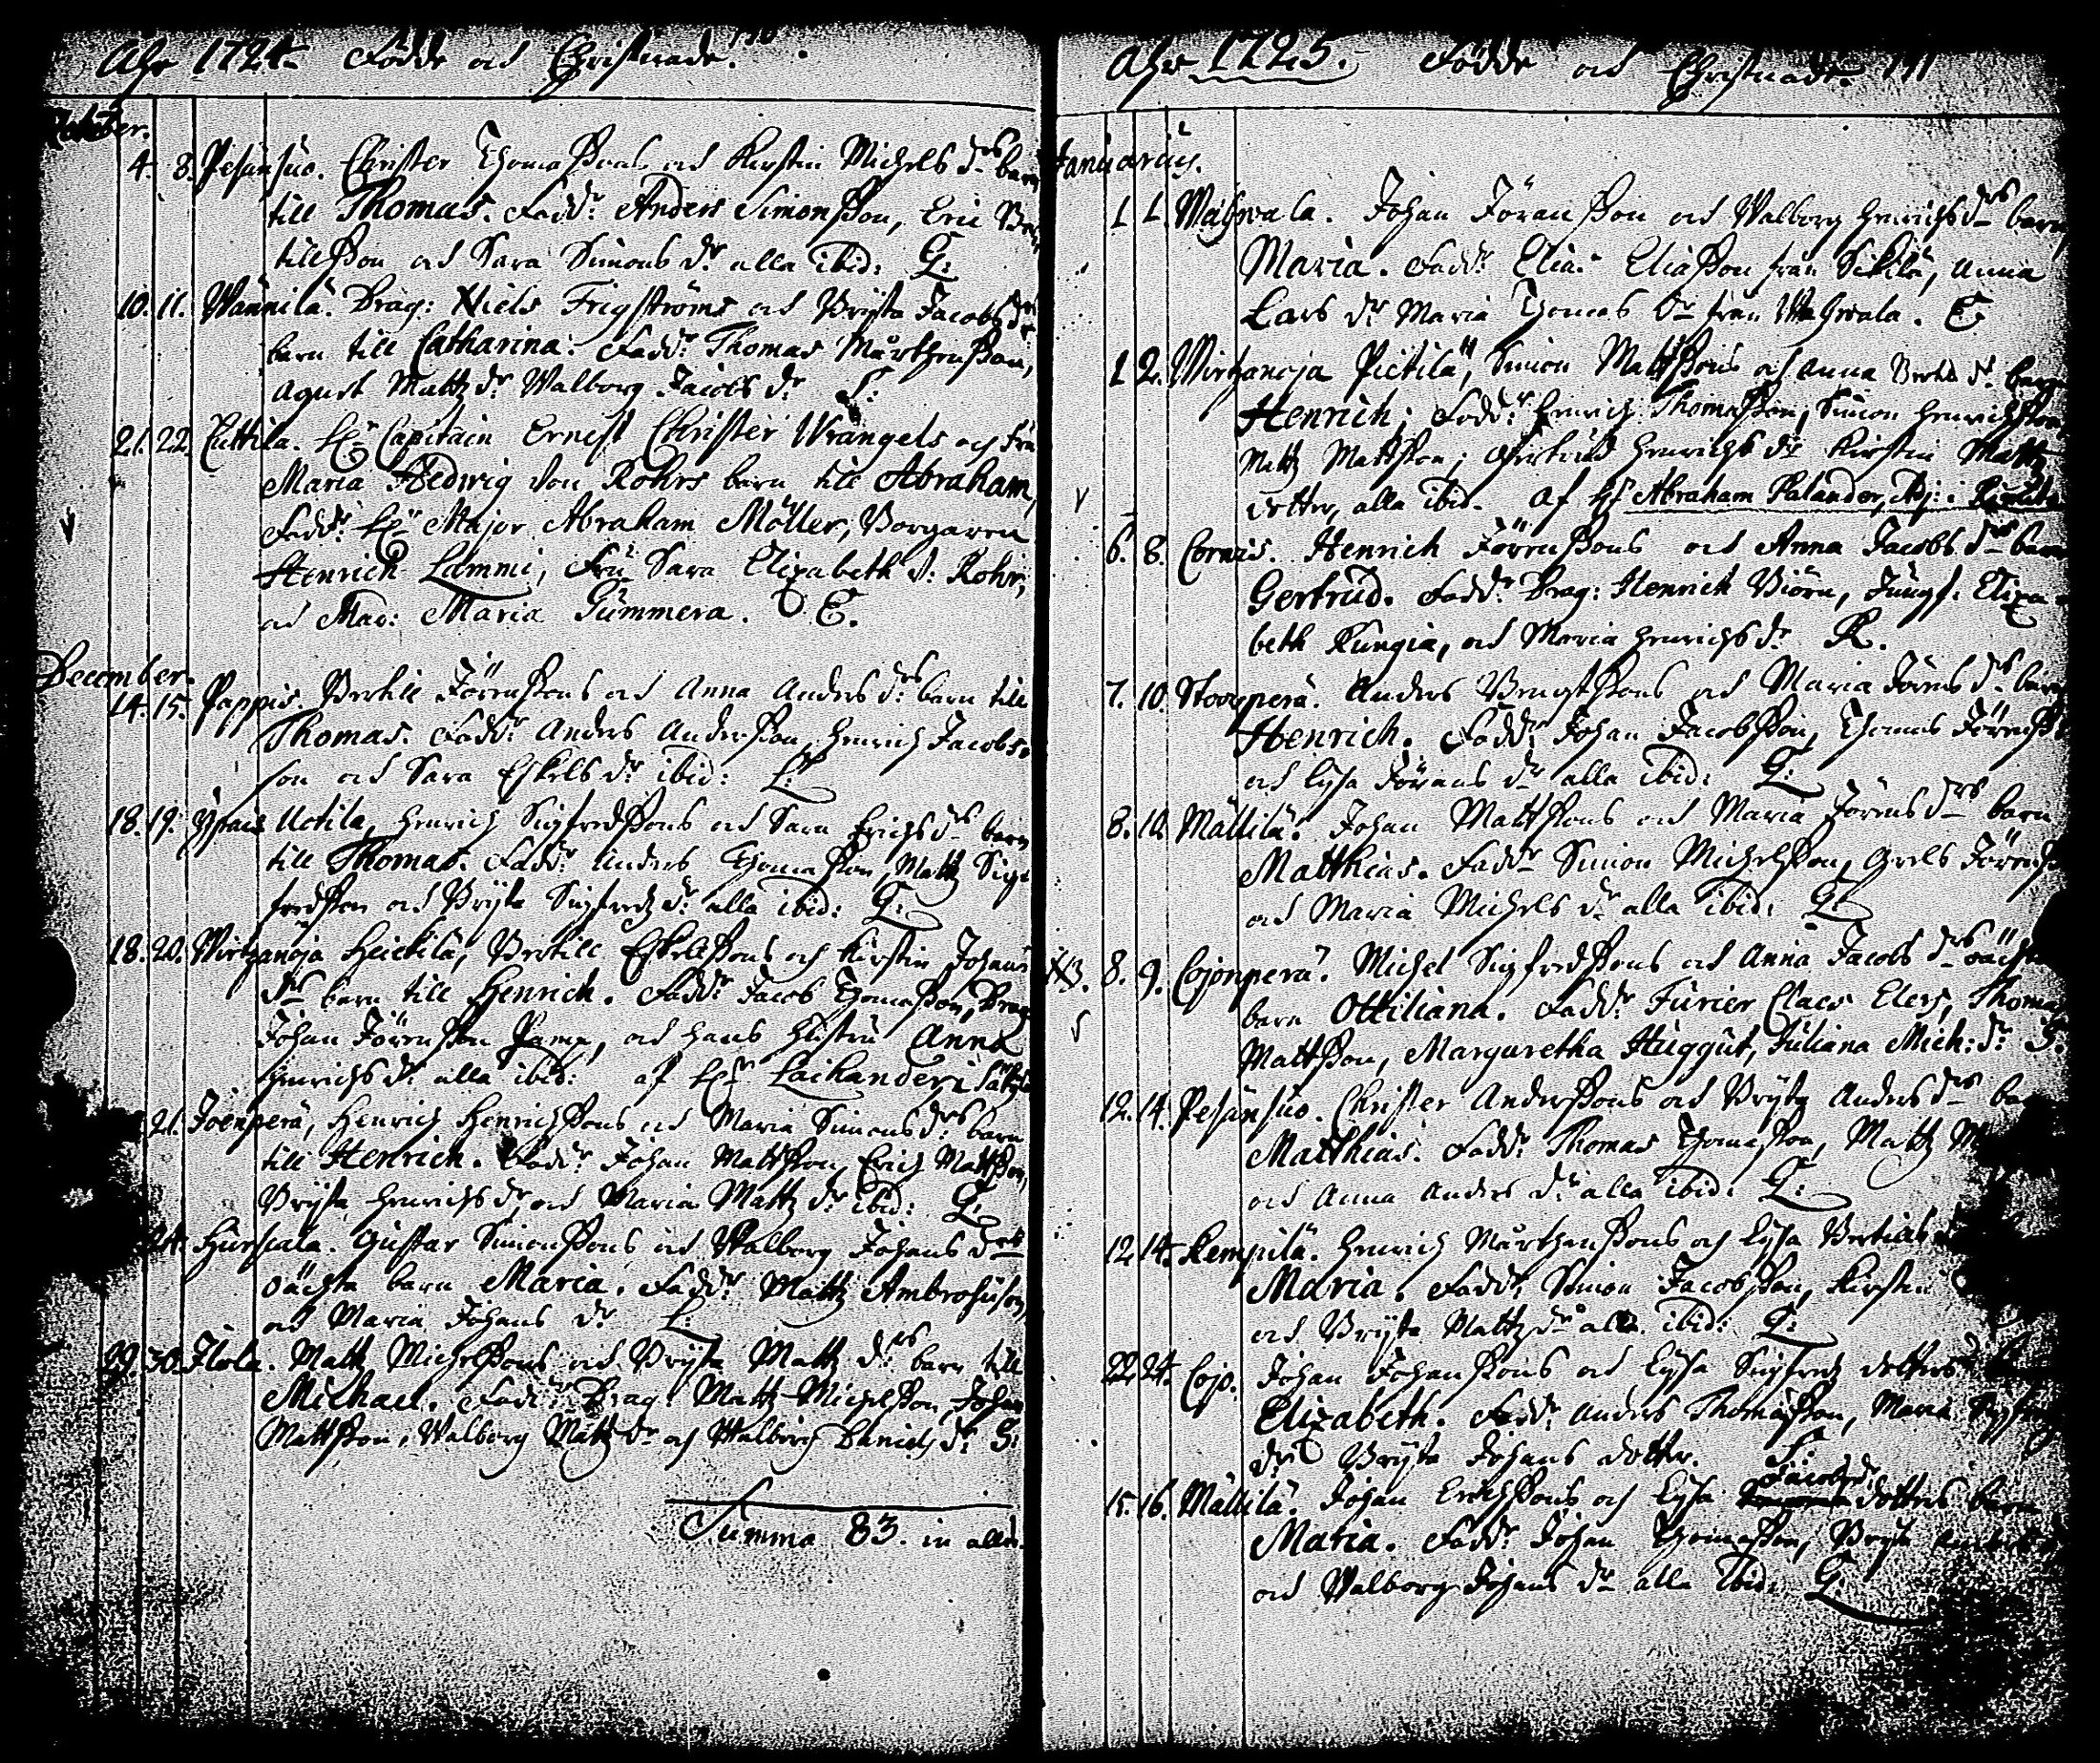 Åhr 1724. Födde och Christnade.
October.
4. 8. Pesänsuo. Christer Thomæssons och Kirstin Michels drs barn
till Thomas. Fadd: Anders Simonsson, Eric Ber-
tillsson och Sara Simons dr alla ibid: G:
10. 11. Wännilä. Drag: Niels Frigströms och Brijta Jacobs drs
barn till Catharina. Fadd: Thomas Mårthensson,
Agnet Mattz dr Walborg Jacobs dr S:
21. 22. Cuttila. Hr Capitain Ernest Christer Wrangels och Fru
Maria Hedwig von Rohrs barn till Abraham,
Fadd: Hr Major Abraham Möller, Borgaren
Henrich Lammi, Fru Sara Elizabeth v: Rohr,
och Mad: Maria Gummera. E.
December.
14. 15. Pappis. Bertill Jörenssons och Anna Anders drs barn till
Thomas. Fadd: Anders Andersson, Henrich Jacobs-
son och Sara Eskels dr ibid: L:
18. 19. Uotila, Henrich Sigfredssons och Sara Erichs drs barn
till Thomas. Fadd: Anders Thomasson, Mattz Sig-
fredsson och Brijta Sigfredz dr alla ibid: G:
18. 20. Wirtzanoja Heickilä, Bertill Eskelssons och Kirstin Johans
drs barn till Henrich. Fadd: Jacob Thomasson, Drag:
Johan Jörensson, och hans Hustru Anna
Henrichs dr alla ibid: af Hr Laihander i
21. Joenperä, Henrich Henrichssons och Maria Simons drs barn
till Henrich. Fadd: Johan Mattsson, Erich Mattsson,
Brijta Henrichs dr och Maria Mattz dr ibid: G:
24. Hursiala. Gustav Simonssons och Walborg Johans drs
oächta barn Maria. Fadd: Mattz Ambrosiuson,
och Maria Johans dr L:
29. 30. Ilola. Mattz Michelssons och Brijta Mattz drs barn till
Michael. Fadd: Drag: Mattz Michelsson, Johan
Mattsson, Walborg Mattz dr och Walborg Daniels dr S:
Summa 83. in alles.
Åhr 1725. Födde och Christnade. 111
Januarius.
1. 1. Mahwala. Johan Jöransson och Walborg Henrichs drs barn
Maria. Fadd: Elias Eliasson från Sikilä, Anna
Lars dr Maria Thomas dr från Mahwala. E
1 2. Wirtzanoja Pietilä, Simon Mattssons och Anna Bertils drs barn
Henrich. Fadd: Henrich Thomasson, Simon Henrichsson
Mattz Mattsson; Gertrud Henrichs dr Kirstin Mattz
dotter, alla ibid. Af Hr Abraham Palander,
6. 8. Cornis. Henrich Jörenssons och Anna Jacobs drs barn
Gertrud. Fadd: Drag: Henrich Biörn, Jungf: Eliza-
beth Kungia, och Maria Henrichs dr R.
7. 10. Storperä. Anders Bengtssons och Maria Jörens drs barn
Henrich. Fadd: Johan Jacobsson, Thomas Jörenss
och Lysa Jörans dr alla ibid: G:
8. 10. Mällilä. Johan Mattssons och Maria Jörens drs barn
Matthias. Fadd: Simon Michelsson, Grels Jörens
och Maria Michels dr alla ibid: G:
NB. 8. 9. Cojonperä. Michel Sigfredssons och Anna Jacobs drs oächta
barn Ottiliana. Fadd: Furier Claes Elers, Thomas
Mattsson, Margaretha Huggut, Juliana Mich: dr S:
12. 14. Pesänsuo. Christer Anderssons och Brijta Anders drs
Matthias. Fadd: Thomas Thomasson, Mattz
och Anna Anders dr alla ibid: G:
12. 14. Rempilä. Henrich Mårthenssons och Lysa Bertils
Maria. Fadd: Simon Jacobsson, Kirstin
och Brijta Mattz dr alla ibid: G:
22. 24. Cojo. Johan Johanssons och Lysa Sigfredz dotters
Elizabeth. Fadd: Anders Thomasson, Maria Sigfredz
dr Brijta Johans dotter. S:
15. 16. Mällilä. Johan Erichssons och Lysa Jacobs dotters barn
Maria. Fadd: Johan Thomasson, Brijta
och Walborg Johans dr alla ibid: G: